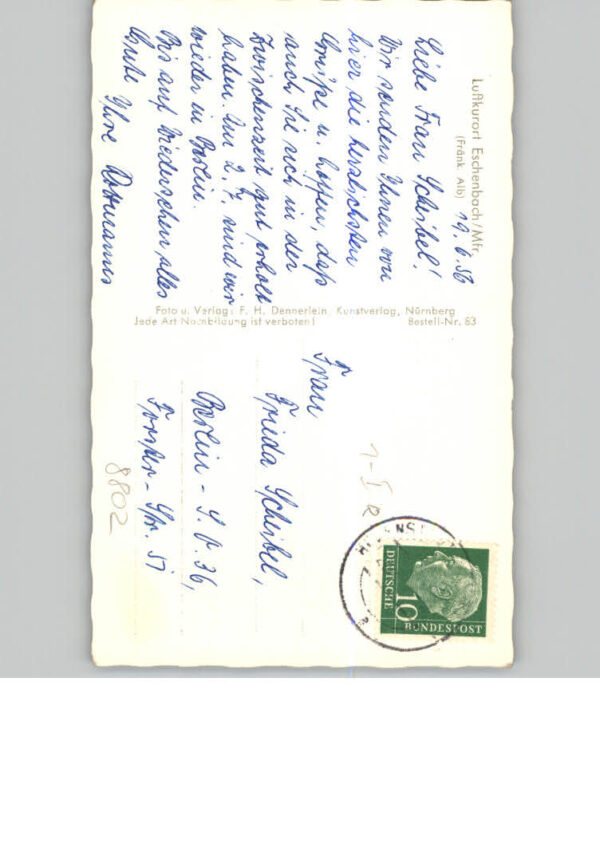 Luftkurort Eschenbach/Mfr.
(Fränk. Alb)
19.6.56
Liebe Frau Scheibel!
Wir senden Ihnen von
hier die herzlichsten
Grüße u. hoffen, daß
auch Sie sich in der
Zwischenzeit gut erholt
haben. Am 2.7. sind wir
wieder in Berlin.
Bis auf Wiedersehen alles
Gute Ihre
Foto u. Verlag: F. H. Dennerlein, Kunstverlag, Nürnberg
Jede Art Nachbildung ist verboten! Bestell-Nr. 83
Frau
Frieda Scheibel,
Berlin - S.O. 36,
Forster - Str. 51
8802
DEUTSCHE
BUNDESPOST
10